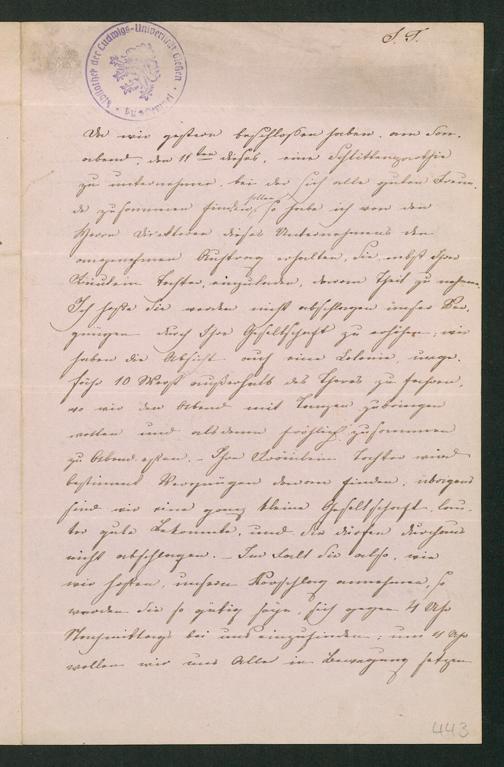 S. T.
Bibliothek der Ludwigs-Universität Gießen
Da wir gestern beschlossen haben, am Son-
abend, den 11ten dieses, eine Schlittenparthie
zu unternehmen, bei der sich alle guten Freun-
de zusammen finden sollen, so habe ich von den
Herrn Direktoren dieses Unternehmens den
angenehmen Auftrag erhalten, Sie, nebst Ihrer
Fräulein Tochter, einzuladen, daran Theil zu nehmen.
Ich hoffe Sie werden nicht abschlagen unser Ver-
gnügen durch Ihre Gesellschaft zu erhöhen; wir
haben die Absicht auf eine Colonie, unge-
fähr 10 Werst außerhalb des Thores zu fahren,
wo wir den Abend mit Tanzen zubringen
wollen und alsdann fröhlich zusammen
zu Abend essen. – Ihre Fräulein Tochter wird
bestimmt Vergnügen daran finden, übrigens
sind wir eine ganz kleine Gesellschaft, lau-
ter gute Bekannte, und Sie dürfen durchaus
nicht abschlagen. – Im Fall Sie also, wie
wir hoffen, unsern Vorschlag annehmen, so
werden Sie so gütig seyn, sich gegen 4 Uhr
Nachmittags bei uns einzufinden; um 4 Uhr
wollen wir uns Alle in Bewegung setzen
443